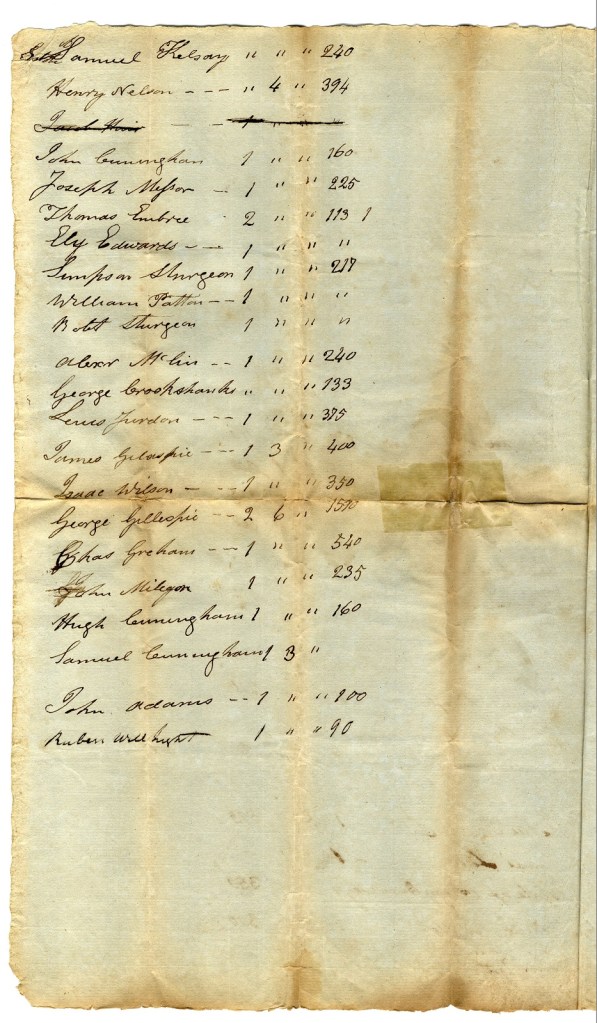 Samuel Kelsay " " " 240
Henry Nelson - - - " 4 " 394
- - 1 " " "
John Cuningham 1 " " 160
Joseph Messor - 1 " " 225
Thomas Embree 2 " " 113 1
Ely Edwards - - - 1 " " "
Simpson Sturgeon 1 " " 217
William Patton - - 1 " " "
Robt Sturgeon 1 " " "
Alexr McLin - - 1 " " 240
George Crookshanks " " " 133
Lewis Jurdon - - - 1 " " 375
James Gilaspie - - - 1 3 " 400
Isaac Wilson - - 1 " " 350
George Gillespie - - 2 6 " 1500
Chas Greham - - - 1 " " 540
John Miligan 1 " " 235
Hugh Cuningham 1 " " 160
Samuel Cuningham 1 3 "
John Adams - - 1 " " 100
Ruben 1 " " 90